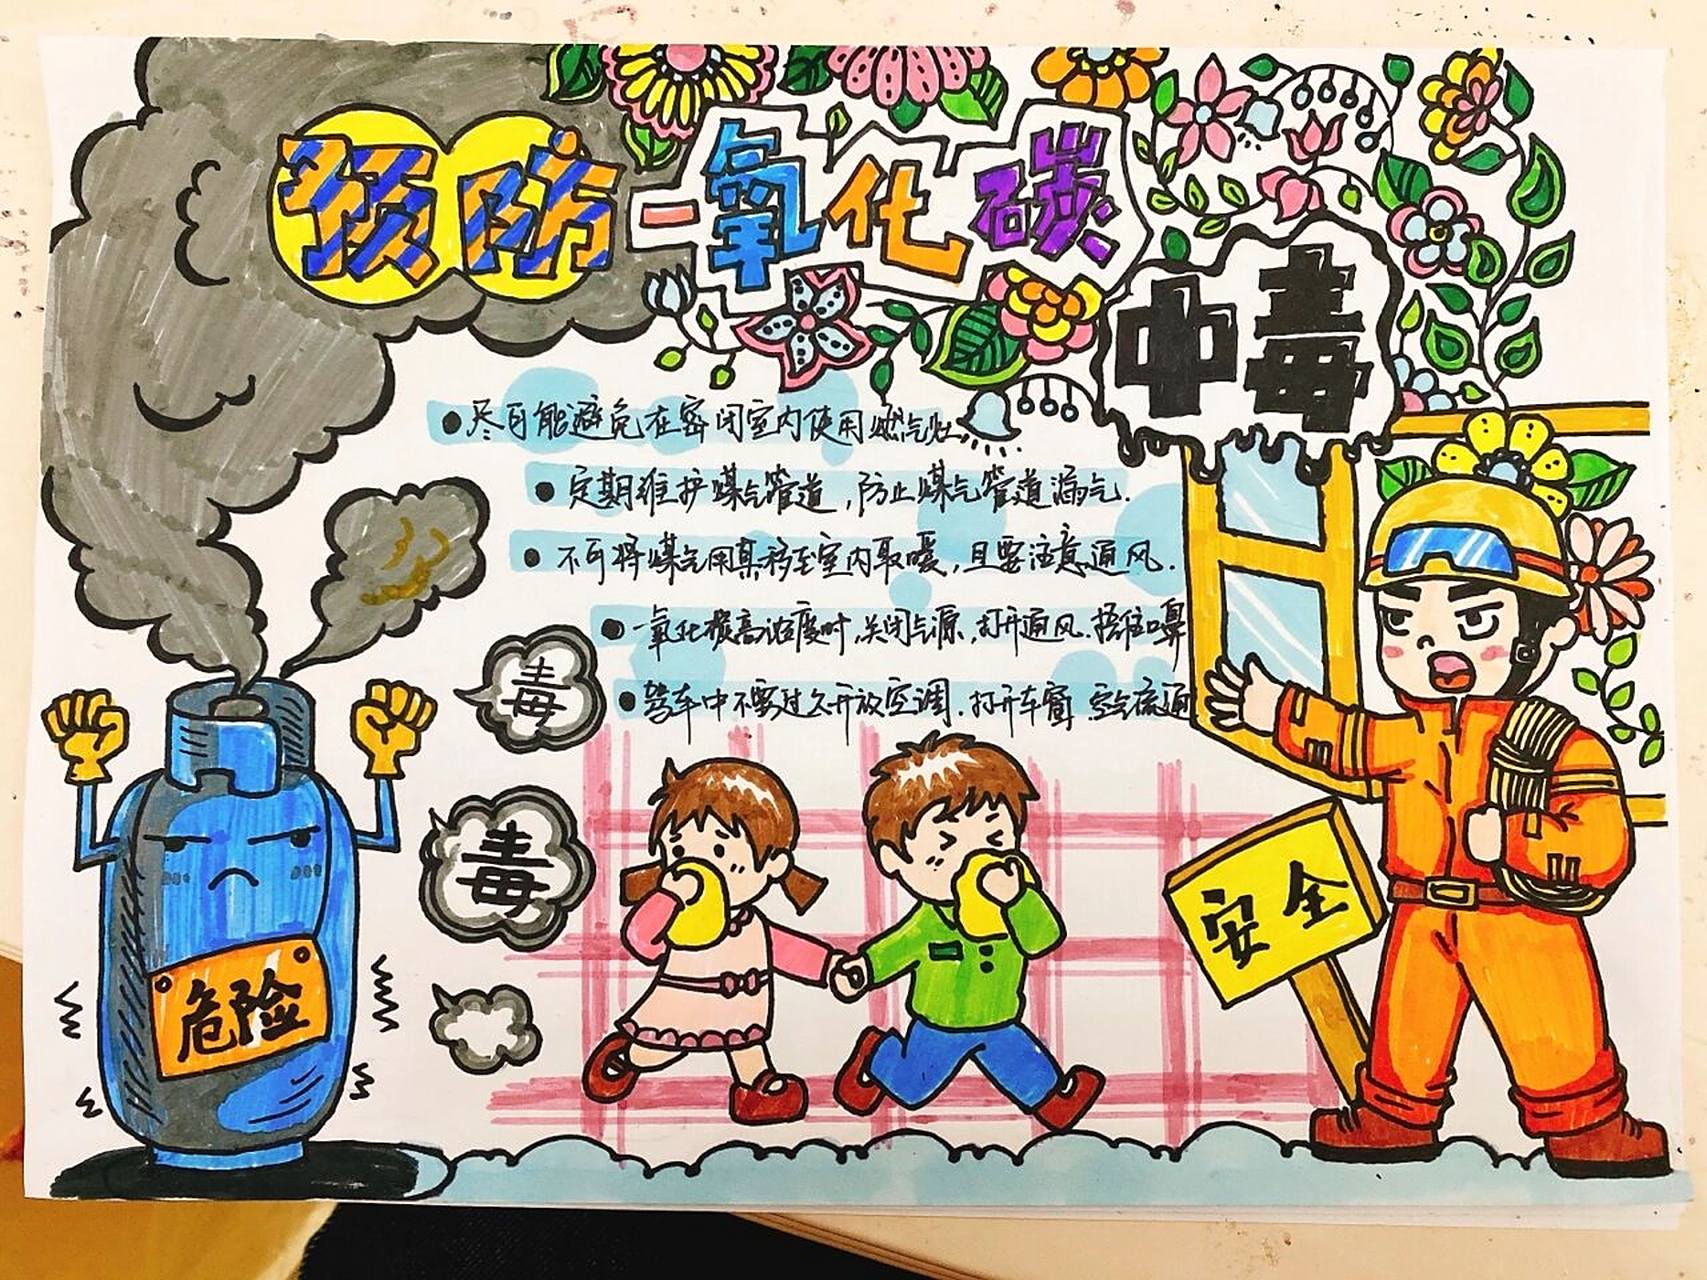 预防一氧化碳
中毒
●尽可能避免在密闭室内使用燃气灶.
●定期维护煤气管道,防止煤气管道漏气.
●不可将煤气用具移至室内取暖,且要注意通风.
●一氧化碳高浓度时,关闭气源,打开通风.捂住口鼻
●驾车中不要过久开放空调.打开车窗 空气流通
毒
毒
安全
危险